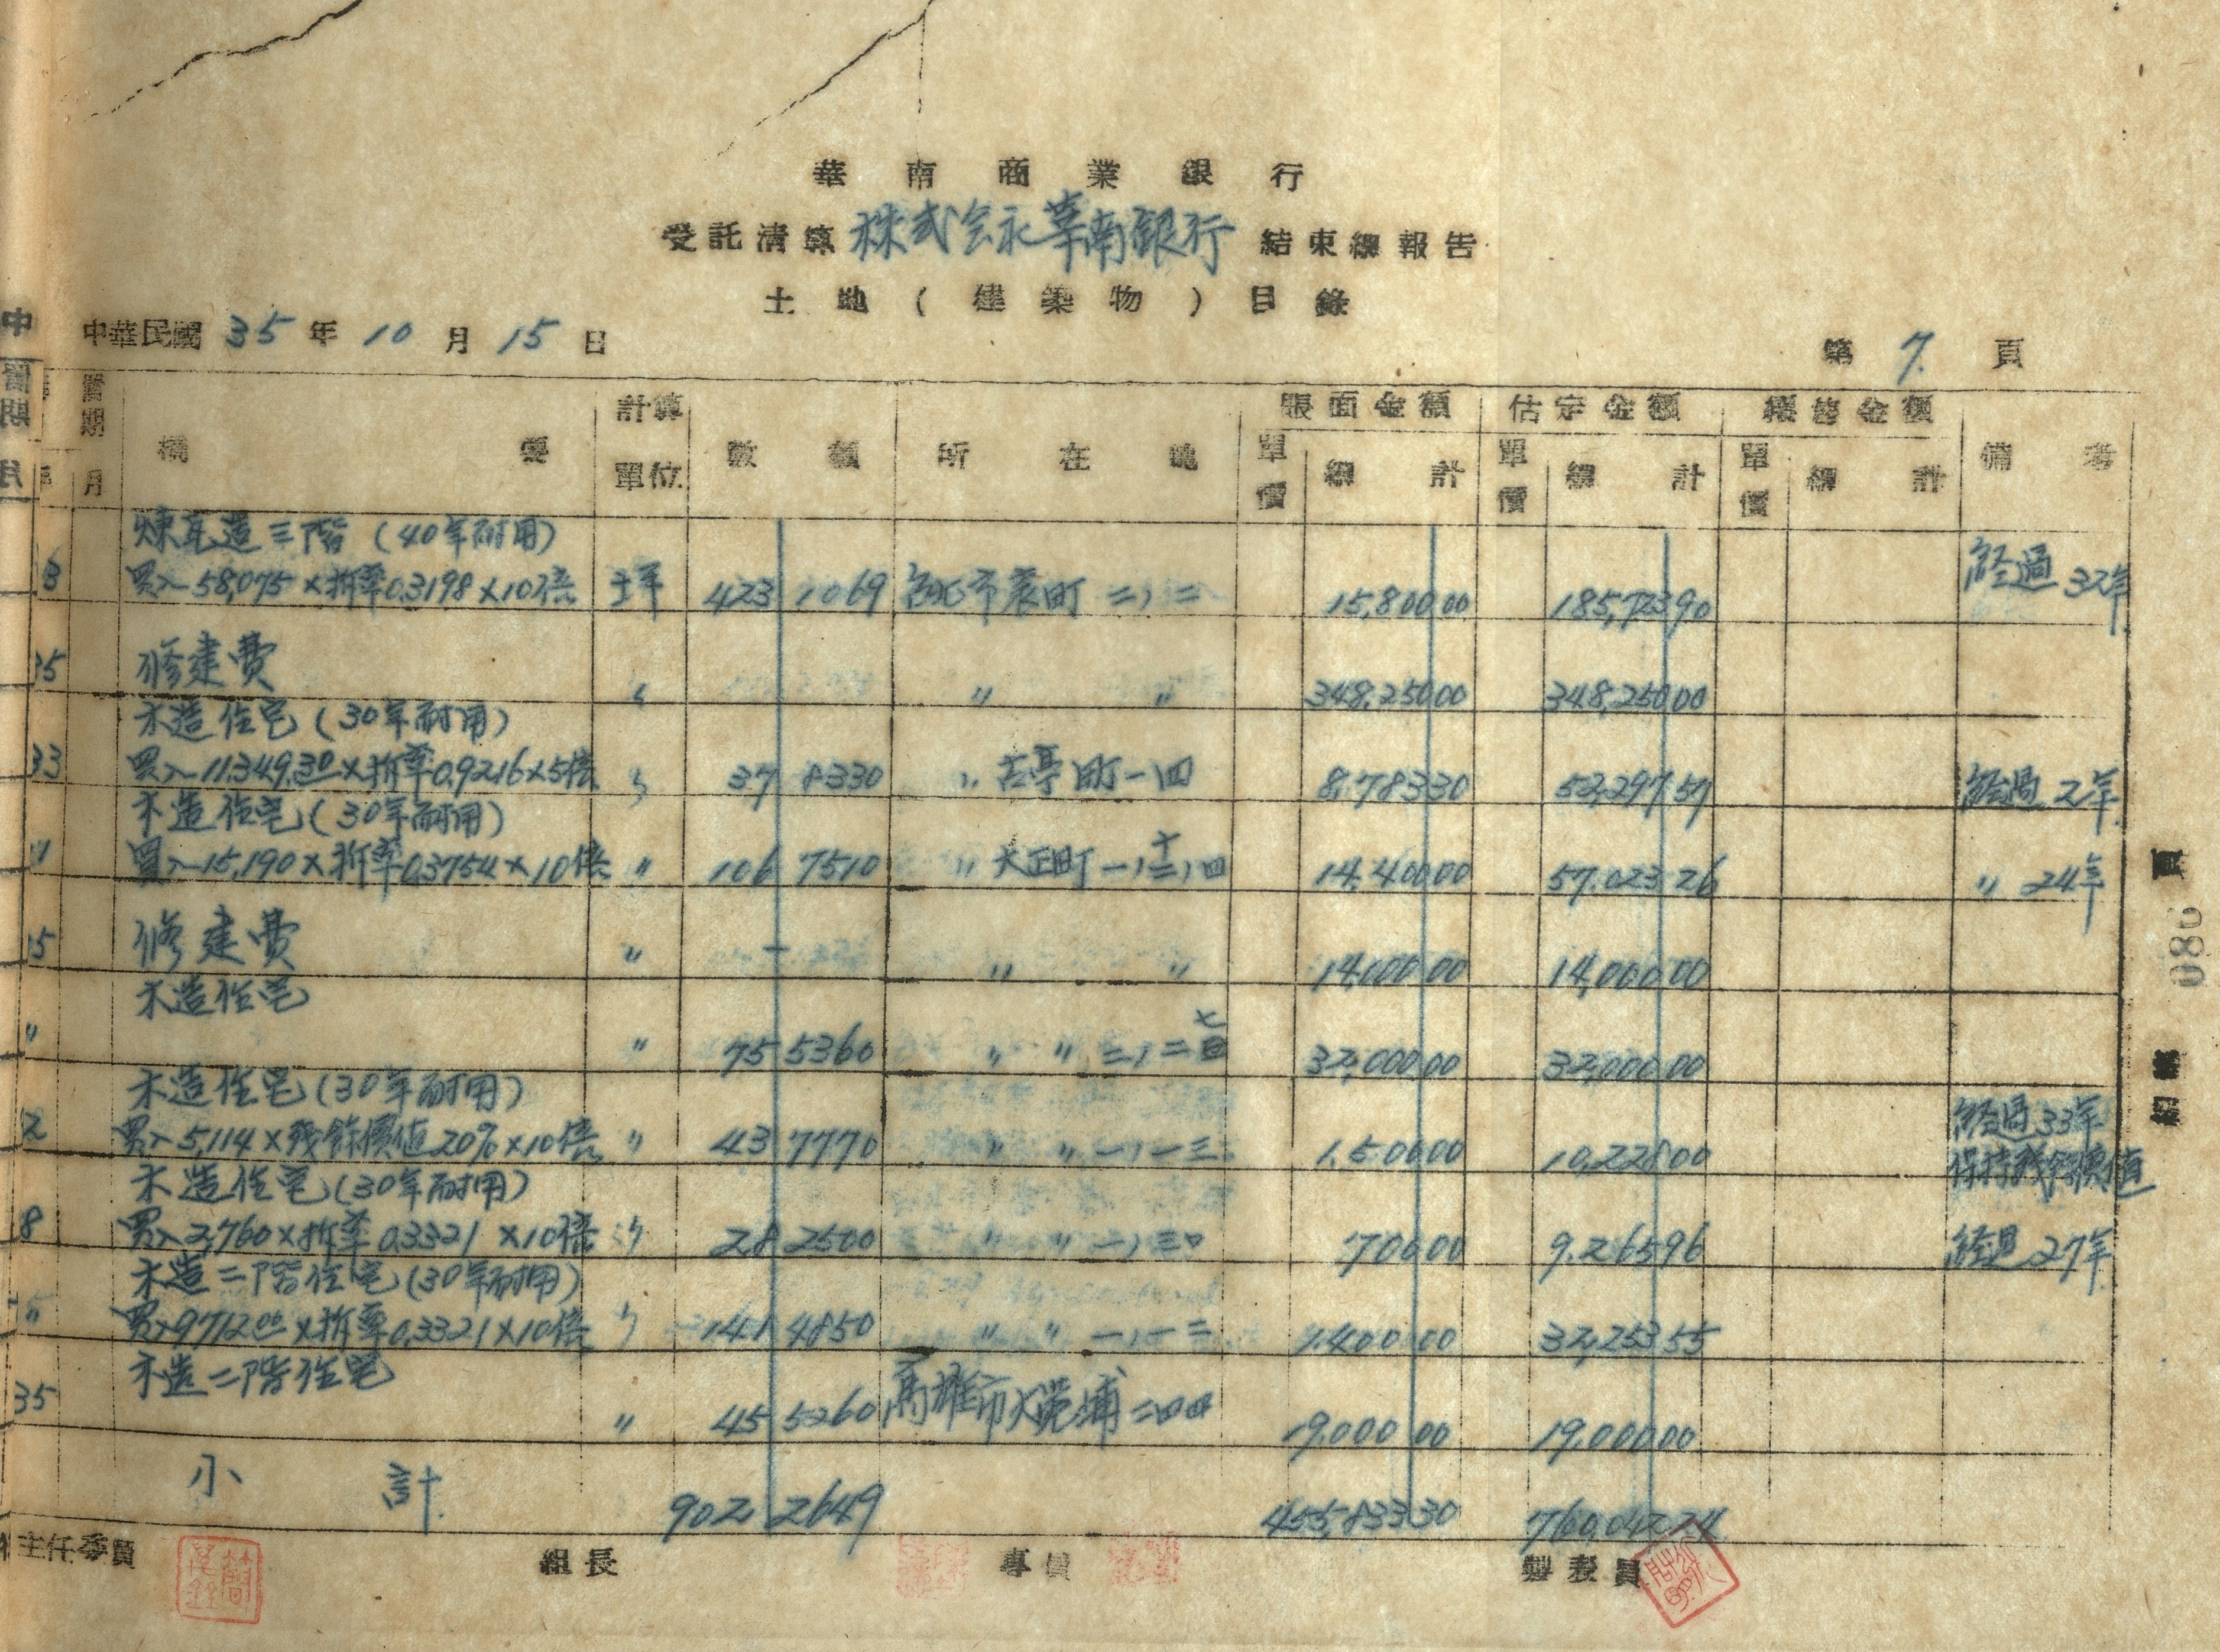 華南商業銀行
受託清算 株式会社華南銀行 結束總報告
土地(建築物)目錄
中華民國 35 年 10 月 15 日
第 7. 頁
置期 年 月 摘要 計算單位 數額 所在地 賬面金額 單價 總計 估定金額 單價 總計 單價 總計 備考
煉瓦造三階 (40年耐用)
買入58,075×折率0.3198×10倍 坪 423 1069 台北市表町 二,二 15,800.00 185,723.90 経過 32年
35 修建費 〃 〃 〃 348,250.00 348,250.00
木造住宅 (30年耐用)
33 買入11,349.30×折率0.9216×5倍 〃 37 8330 〃 古亭町一四 8,783.30 52,297.57 経過 2年
木造住宅 (30年耐用)
〃 買入15,190×折率0.3754×10倍 〃 106 7510 〃 大正町 14,400.00 57,023.26 〃 24年
修建費 〃 〃 〃 14,000.00 14,000.00
木造住宅
〃 〃 75 5360 〃 〃 32,000.00 32,000.00
木造住宅 (30年耐用)
2 買入5,114×残餘價值20%×10倍 〃 43 7770 〃 〃 一,一三 1,500.00 10,228.00 経過 33年
保持残餘價値
木造住宅 (30年耐用)
8 買入2,760×折率0.3321×10倍 〃 28 2500 〃 〃 700.00 9,265.96 経過 27年
木造二階住宅 (30年耐用)
〃 買入9712.00×折率0.3321×10倍 〃 141 4850 〃 〃 一,一三 1,400.00 32,253.55
木造二階住宅
35 〃 45 5260 高雄市大 二四四 19,000.00 19,000.00
小計 902 2649 455,833.30 760,042.24
主任委員 組長 專員 製表員
總號 頁 080